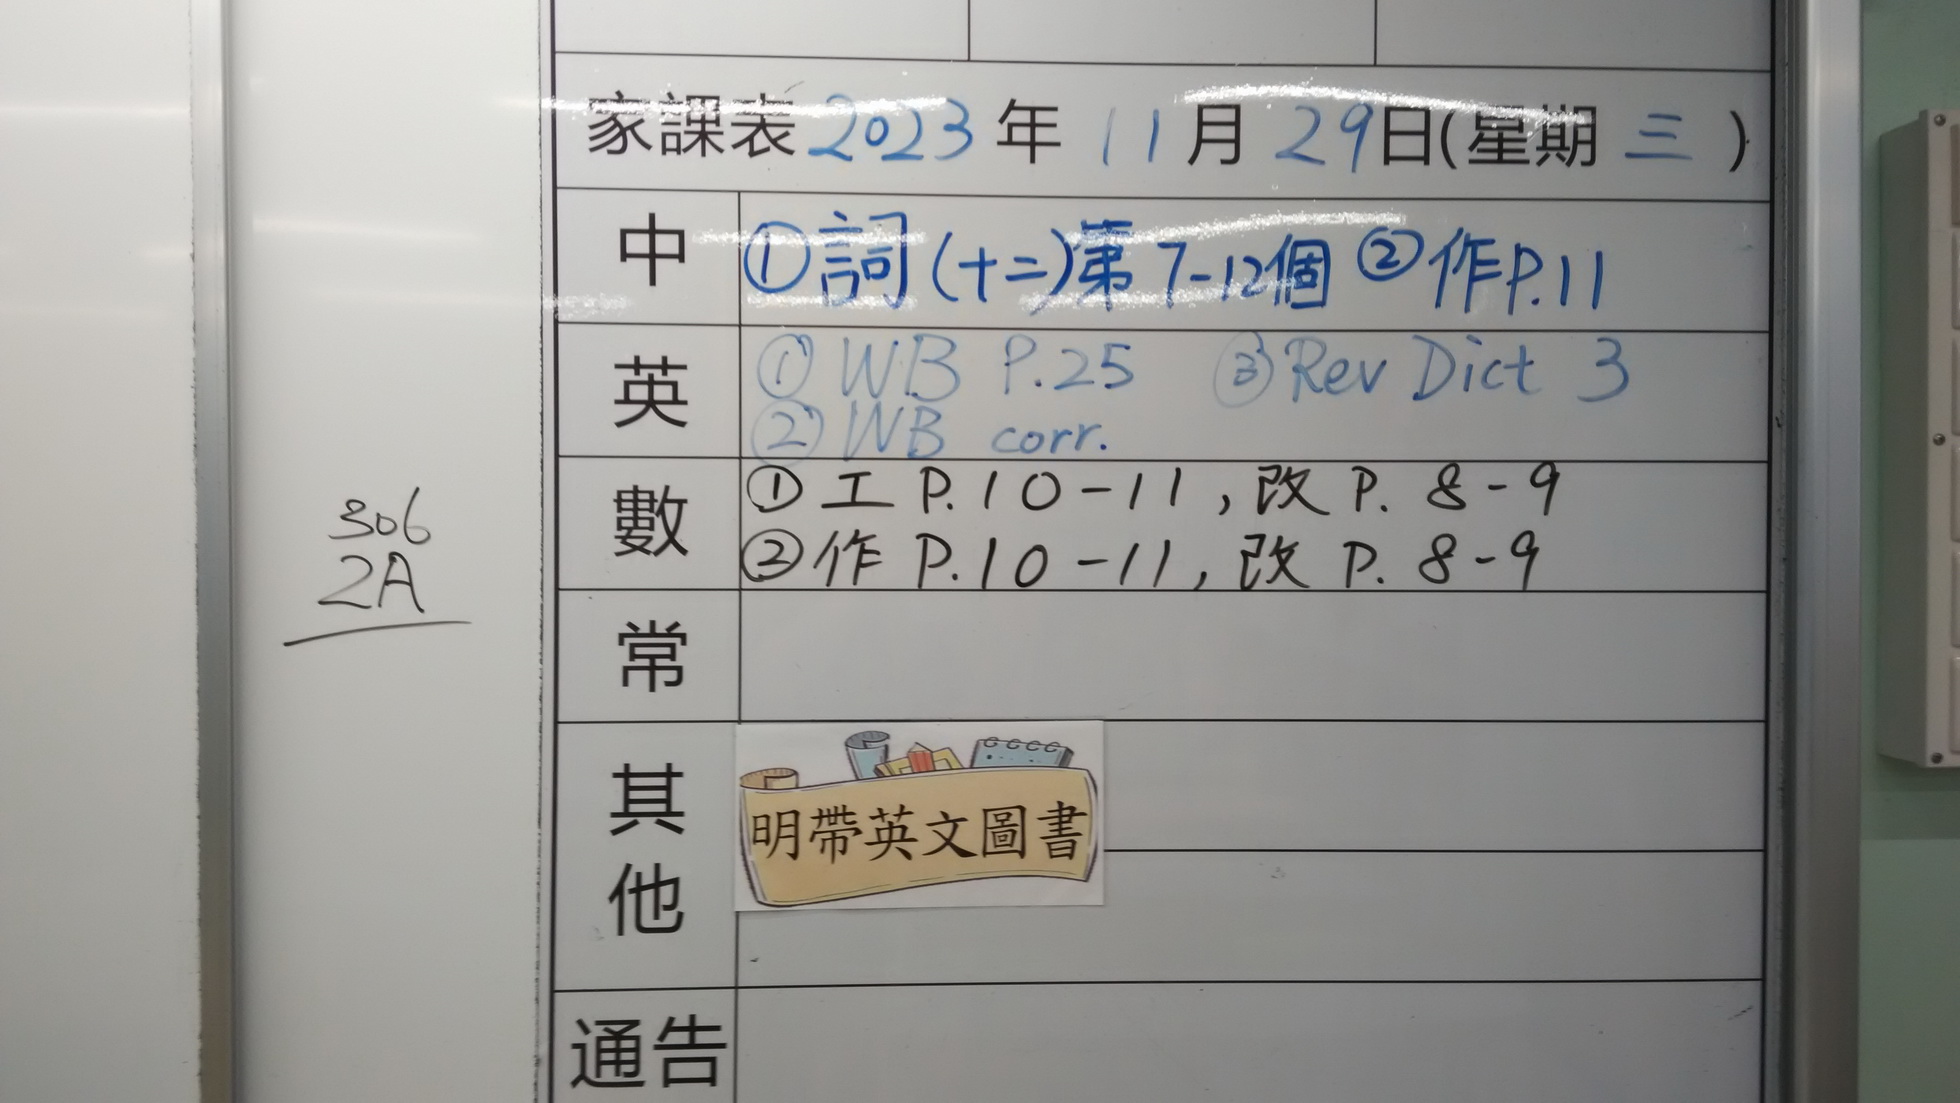 家課表 2023 年 11 月 29 日(星期 三 )
中 ①詞(十二)第7-12個 ②作P.11
英 ① WB P.25 ③ Rev Dict 3
② WB corr.
數 ① 工 P.10-11, 改 P. 8-9
② 作 P.10-11, 改 P. 8-9
306
2A
常
其他
明帶英文圖書
通告